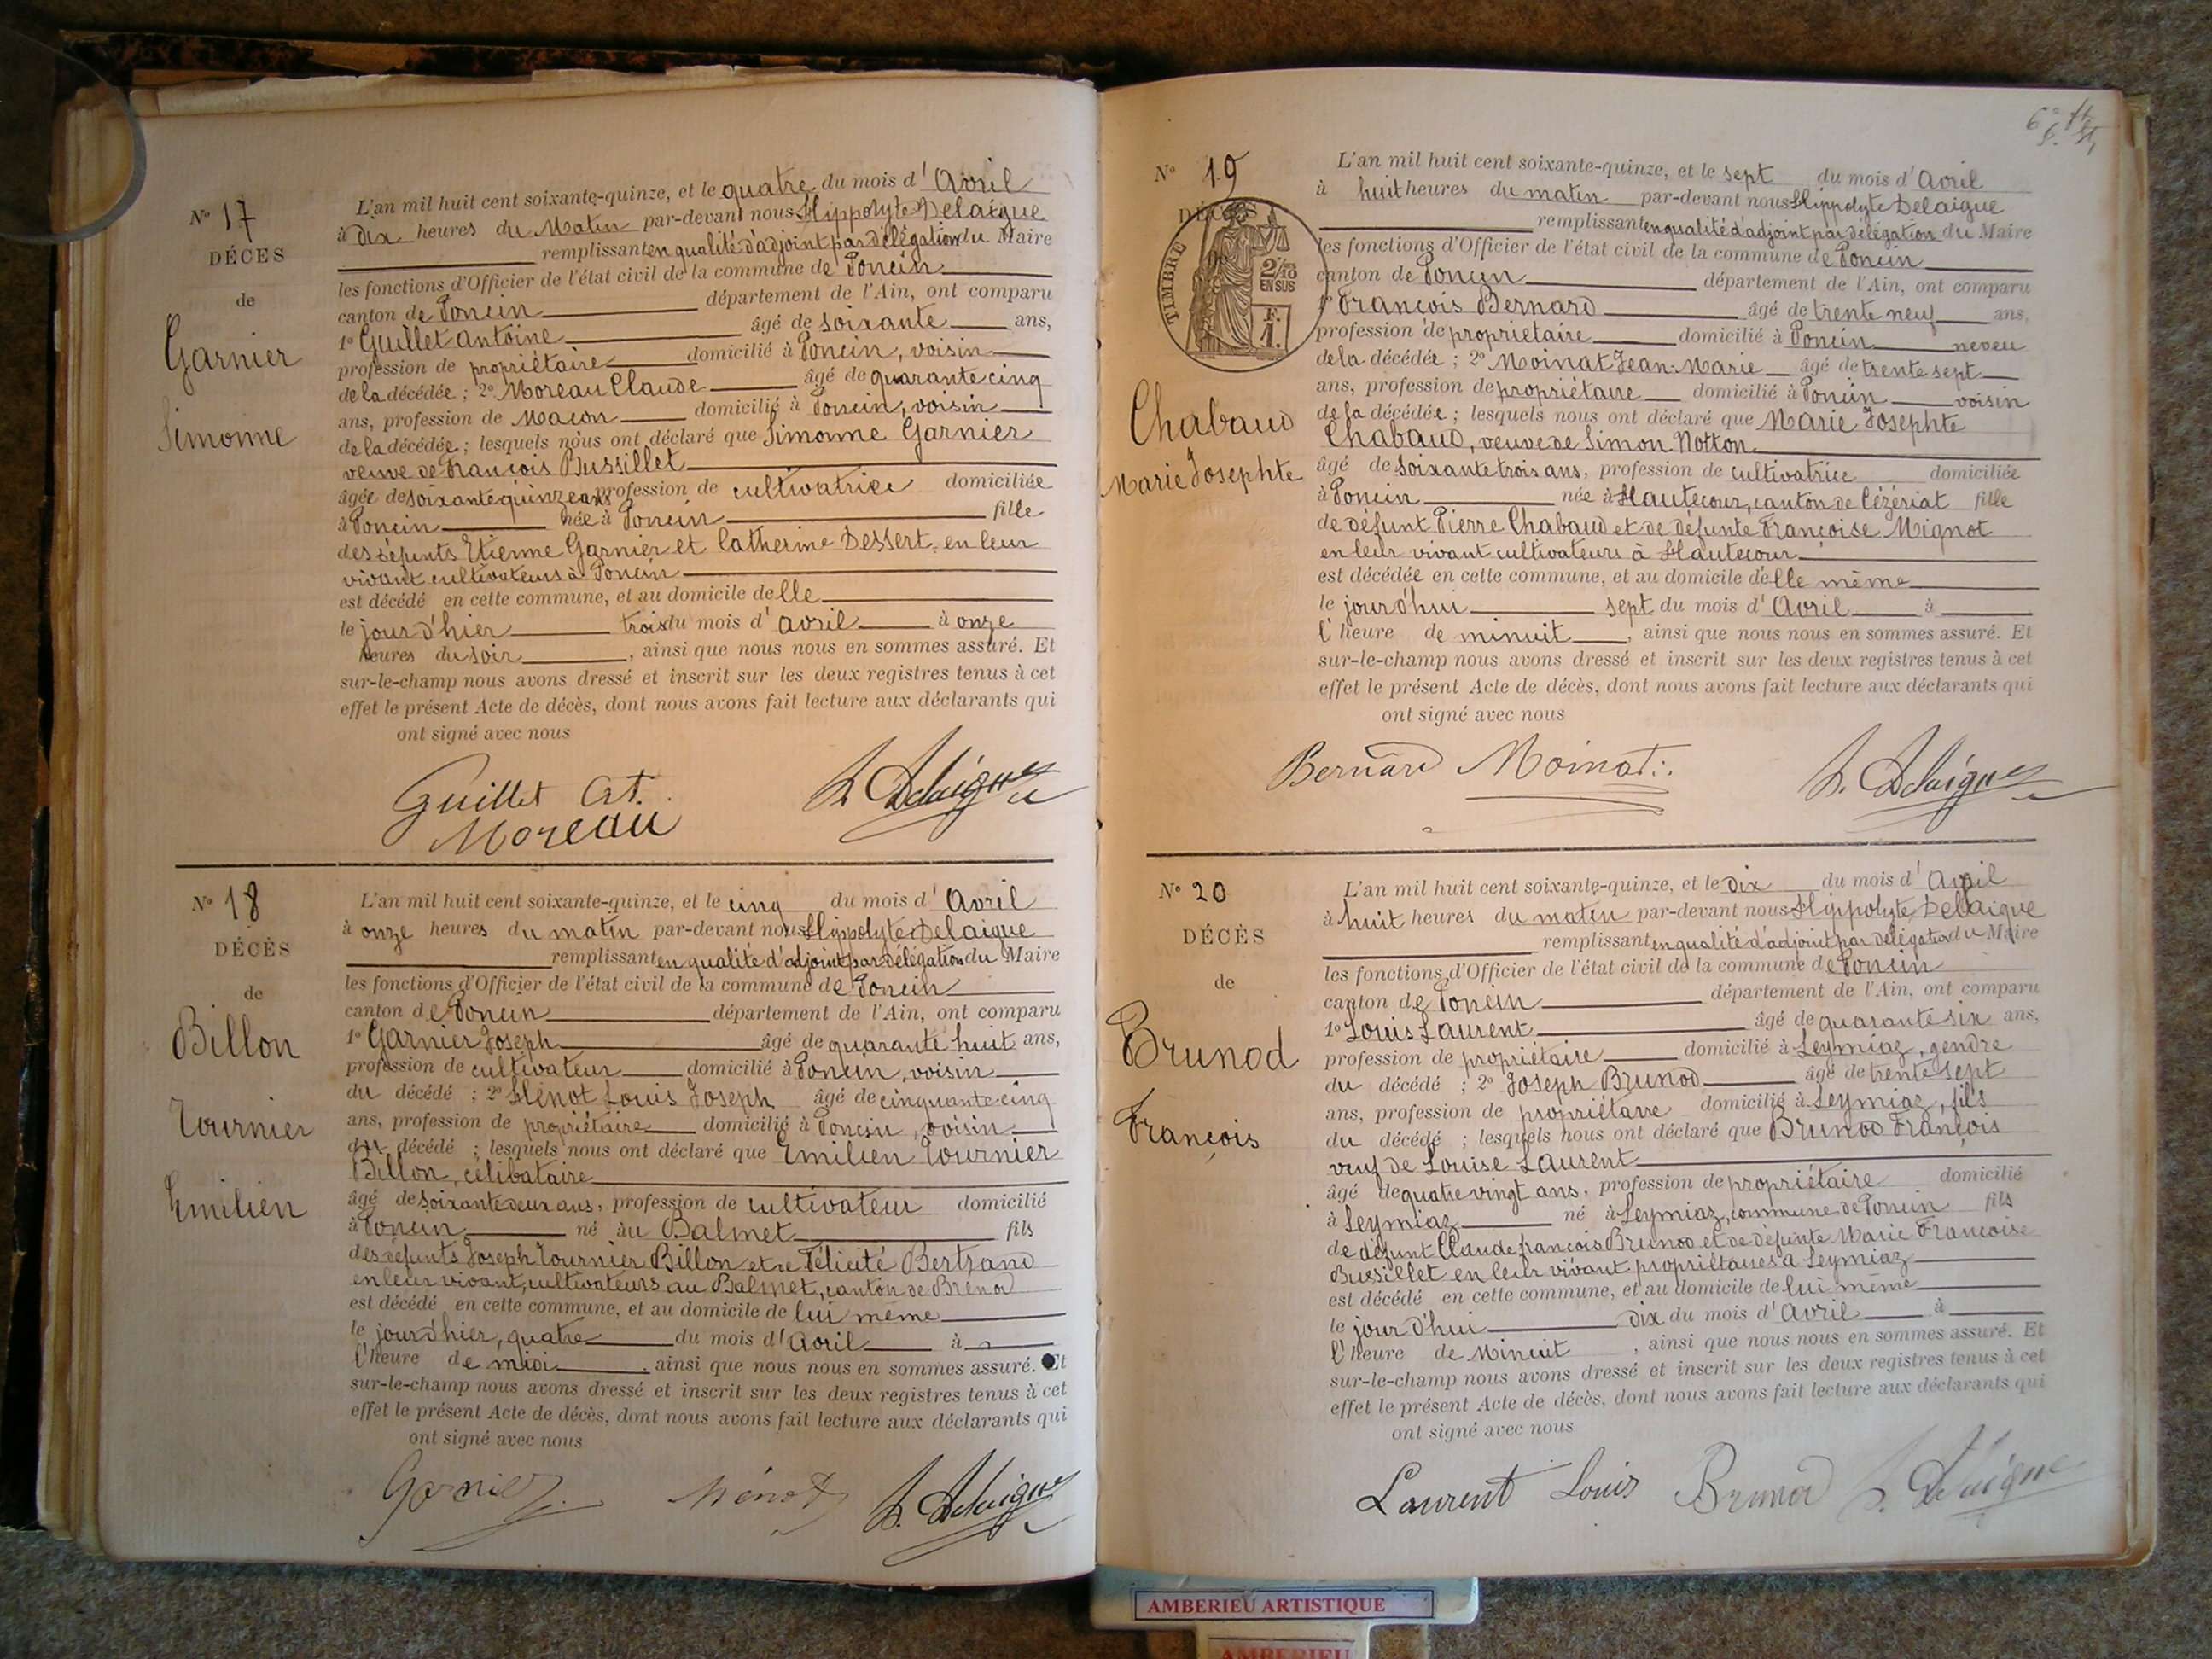 Nº 17
DÉCES
de
Garnier
Simonne
L'an mil huit cent soixante-quinze, et le quatre du mois d'Avril
à Dix heures du Matin par-devant nous Hippolyte Delaigue
remplissant en qualité d'adjoint par délégation du Maire
les fonctions d'Officier de l'état civil de la commune de Poncin
canton de Poncin département de l'Ain, ont comparu
1º Guillet Antoine âgé de soixante ans,
profession de propriétaire domicilié à Poncin, voisin
de la décédée ; 2º Moreau Claude âgé de quarante cinq
ans, profession de Maçon domicilié à Poncin, voisin
de la décédée ; lesquels nous ont déclaré que Simonne Garnier
veuve de François Bussillet
âgée de soixante quinze ans profession de cultivatrice domiciliée
à Poncin née à Poncin fille
des défunts Etienne Garnier et Catherine Dessert, en leur
vivant cultivateurs à Poncin
est décédé en cette commune, et au domicile de lle
le jour d'hier trois du mois d'avril à onze
heures du soir, ainsi que nous nous en sommes assuré. Et
sur-le-champ nous avons dressé et inscrit sur les deux registres tenus à cet
effet le présent Acte de décès, dont nous avons fait lecture aux déclarants qui
ont signé avec nous
Guillet At. H. Delaigue
Moreau
Nº 18
DÉCÈS
de
Billon
Tournier
Emilien
L'an mil huit cent soixante-quinze, et le cinq du mois d'Avril
à onze heures du matin par-devant nous Hippolyte Delaigue
remplissant en qualité d'adjoint par délégation du Maire
les fonctions d'Officier de l'état civil de la commune de Poncin
canton de Poncin département de l'Ain, ont comparu
1º Garnier Joseph âgé de quarante huit ans,
profession de cultivateur domicilié à Poncin, voisin
du décédé ; 2º Hénot Louis Joseph âgé de cinquante cinq
ans, profession de propriétaire domicilié à Poncin, voisin
du décédé ; lesquels nous ont déclaré que Emilien Tournier
Billon, célibataire
âgé de soixante deux ans, profession de cultivateur domicilié
à Poncin né au Balmet fils
des défunts Joseph Tournier Billon et de Félicité Bertrand
en leur vivant, cultivateurs au Balmet, canton de Brénod
est décédé en cette commune, et au domicile de lui même
le jour d'hier, quatre du mois d'Avril à
l'heure de midi, ainsi que nous nous en sommes assuré. Et
sur-le-champ nous avons dressé et inscrit sur les deux registres tenus à cet
effet le présent Acte de décès, dont nous avons fait lecture aux déclarants qui
ont signé avec nous
Garnier Hénot H. Delaigue
Nº 19
DÉCÈS
de
TIMBRE
2/10
EN SUS
F.
1.
Chabaud
Marie Josephte
L'an mil huit cent soixante-quinze, et le sept du mois d'Avril
à huit heures du matin par-devant nous Hippolyte Delaigue
remplissant en qualité d'adjoint par délégation du Maire
les fonctions d'Officier de l'état civil de la commune de Poncin
canton de Poncin département de l'Ain, ont comparu
1º François Bernard âgé de trente neuf ans,
profession de propriétaire domicilié à Poncin neveu
de la décédée ; 2º Moinat Jean-Marie âgé de trente sept
ans, profession de propriétaire domicilié à Poncin voisin
de la décédée ; lesquels nous ont déclaré que Marie Josephte
Chabaud, veuve de Simon Notton
âgé de soixante trois ans, profession de cultivatrice domiciliée
à Poncin née à Hautecour, canton de Cézériat fille
de défunt Pierre Chabaud et de défunte Françoise Mignot
en leur vivant cultivateurs à Hautecour
est décédée en cette commune, et au domicile d'elle même
le jour d'hui sept du mois d'Avril à
l'heure de minuit, ainsi que nous nous en sommes assuré. Et
sur-le-champ nous avons dressé et inscrit sur les deux registres tenus à cet
effet le présent Acte de décès, dont nous avons fait lecture aux déclarants qui
ont signé avec nous
Bernard Moinat H. Delaigue
Nº 20
DÉCÈS
de
Brunod
François
L'an mil huit cent soixante-quinze, et le Dix du mois d'Avril
à huit heures du matin par-devant nous Hippolyte Delaigue
remplissant en qualité d'adjoint par délégation du Maire
les fonctions d'Officier de l'état civil de la commune de Poncin
canton de Poncin département de l'Ain, ont comparu
1º Louis Laurent âgé de quarante six ans,
profession de propriétaire domicilié à Leymiaz, gendre
du décédé ; 2º Joseph Brunod âgé de trente sept
ans, profession de propriétaire domicilié à Leymiaz, fils
du décédé ; lesquels nous ont déclaré que Brunod François
veuf de Louise Laurent
âgé de quatre vingt ans, profession de propriétaire domicilié
à Leymiaz né à Leymiaz, commune de Poncin fils
de défunt Claude françois Brunod et de défunte Marie Françoise
Bussillet en leur vivant propriétaires à Leymiaz
est décédé en cette commune, et au domicile de lui même
le jour d'hui dix du mois d'Avril à
l'heure de Minuit, ainsi que nous nous en sommes assuré. Et
sur-le-champ nous avons dressé et inscrit sur les deux registres tenus à cet
effet le présent Acte de décès, dont nous avons fait lecture aux déclarants qui
ont signé avec nous
Laurent Louis Brunod H. Delaigue
AMBERIEU ARTISTIQUE
AMBERIEU